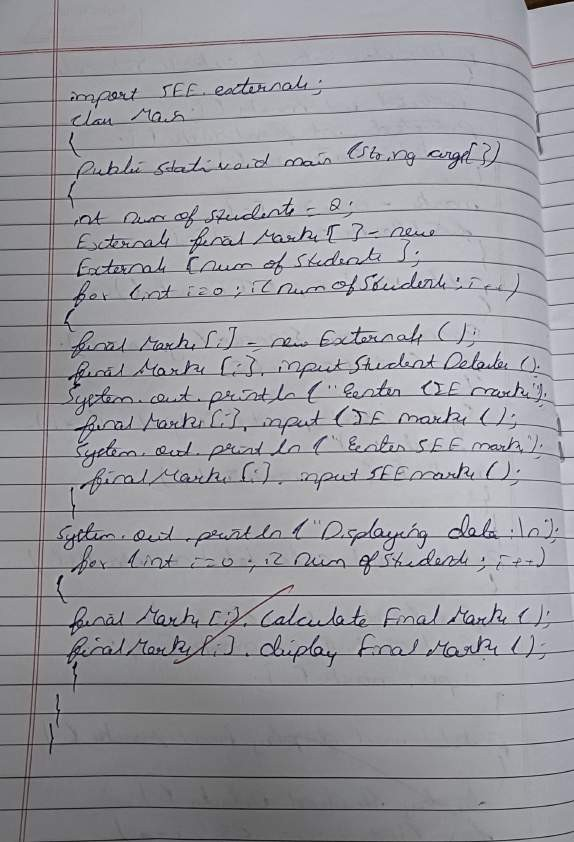 import SEE.externals;
class Main
{
Public static void main (String args[])
{
int num of students = 2;
Externals final Marks[] = new
Externals [num of Students];
for (int i=0; i<num of Students; i++)
{
final Marks[i] = new Externals ();
final Marks [i]. input Student Details ();
System.out.println ("Eenter CIE marks");
final Marks[i]. input CIE marks ();
System.out.println ("Eenter SEE marks");
final Marks [i]. input SEE marks ();
}
System.out.println ("Displaying data:\n");
for (int i=0; i< num of students; i++)
{
final Marks [i]. Calculate Final Marks ();
final Marks [i]. display Final Marks ();
}
}
}